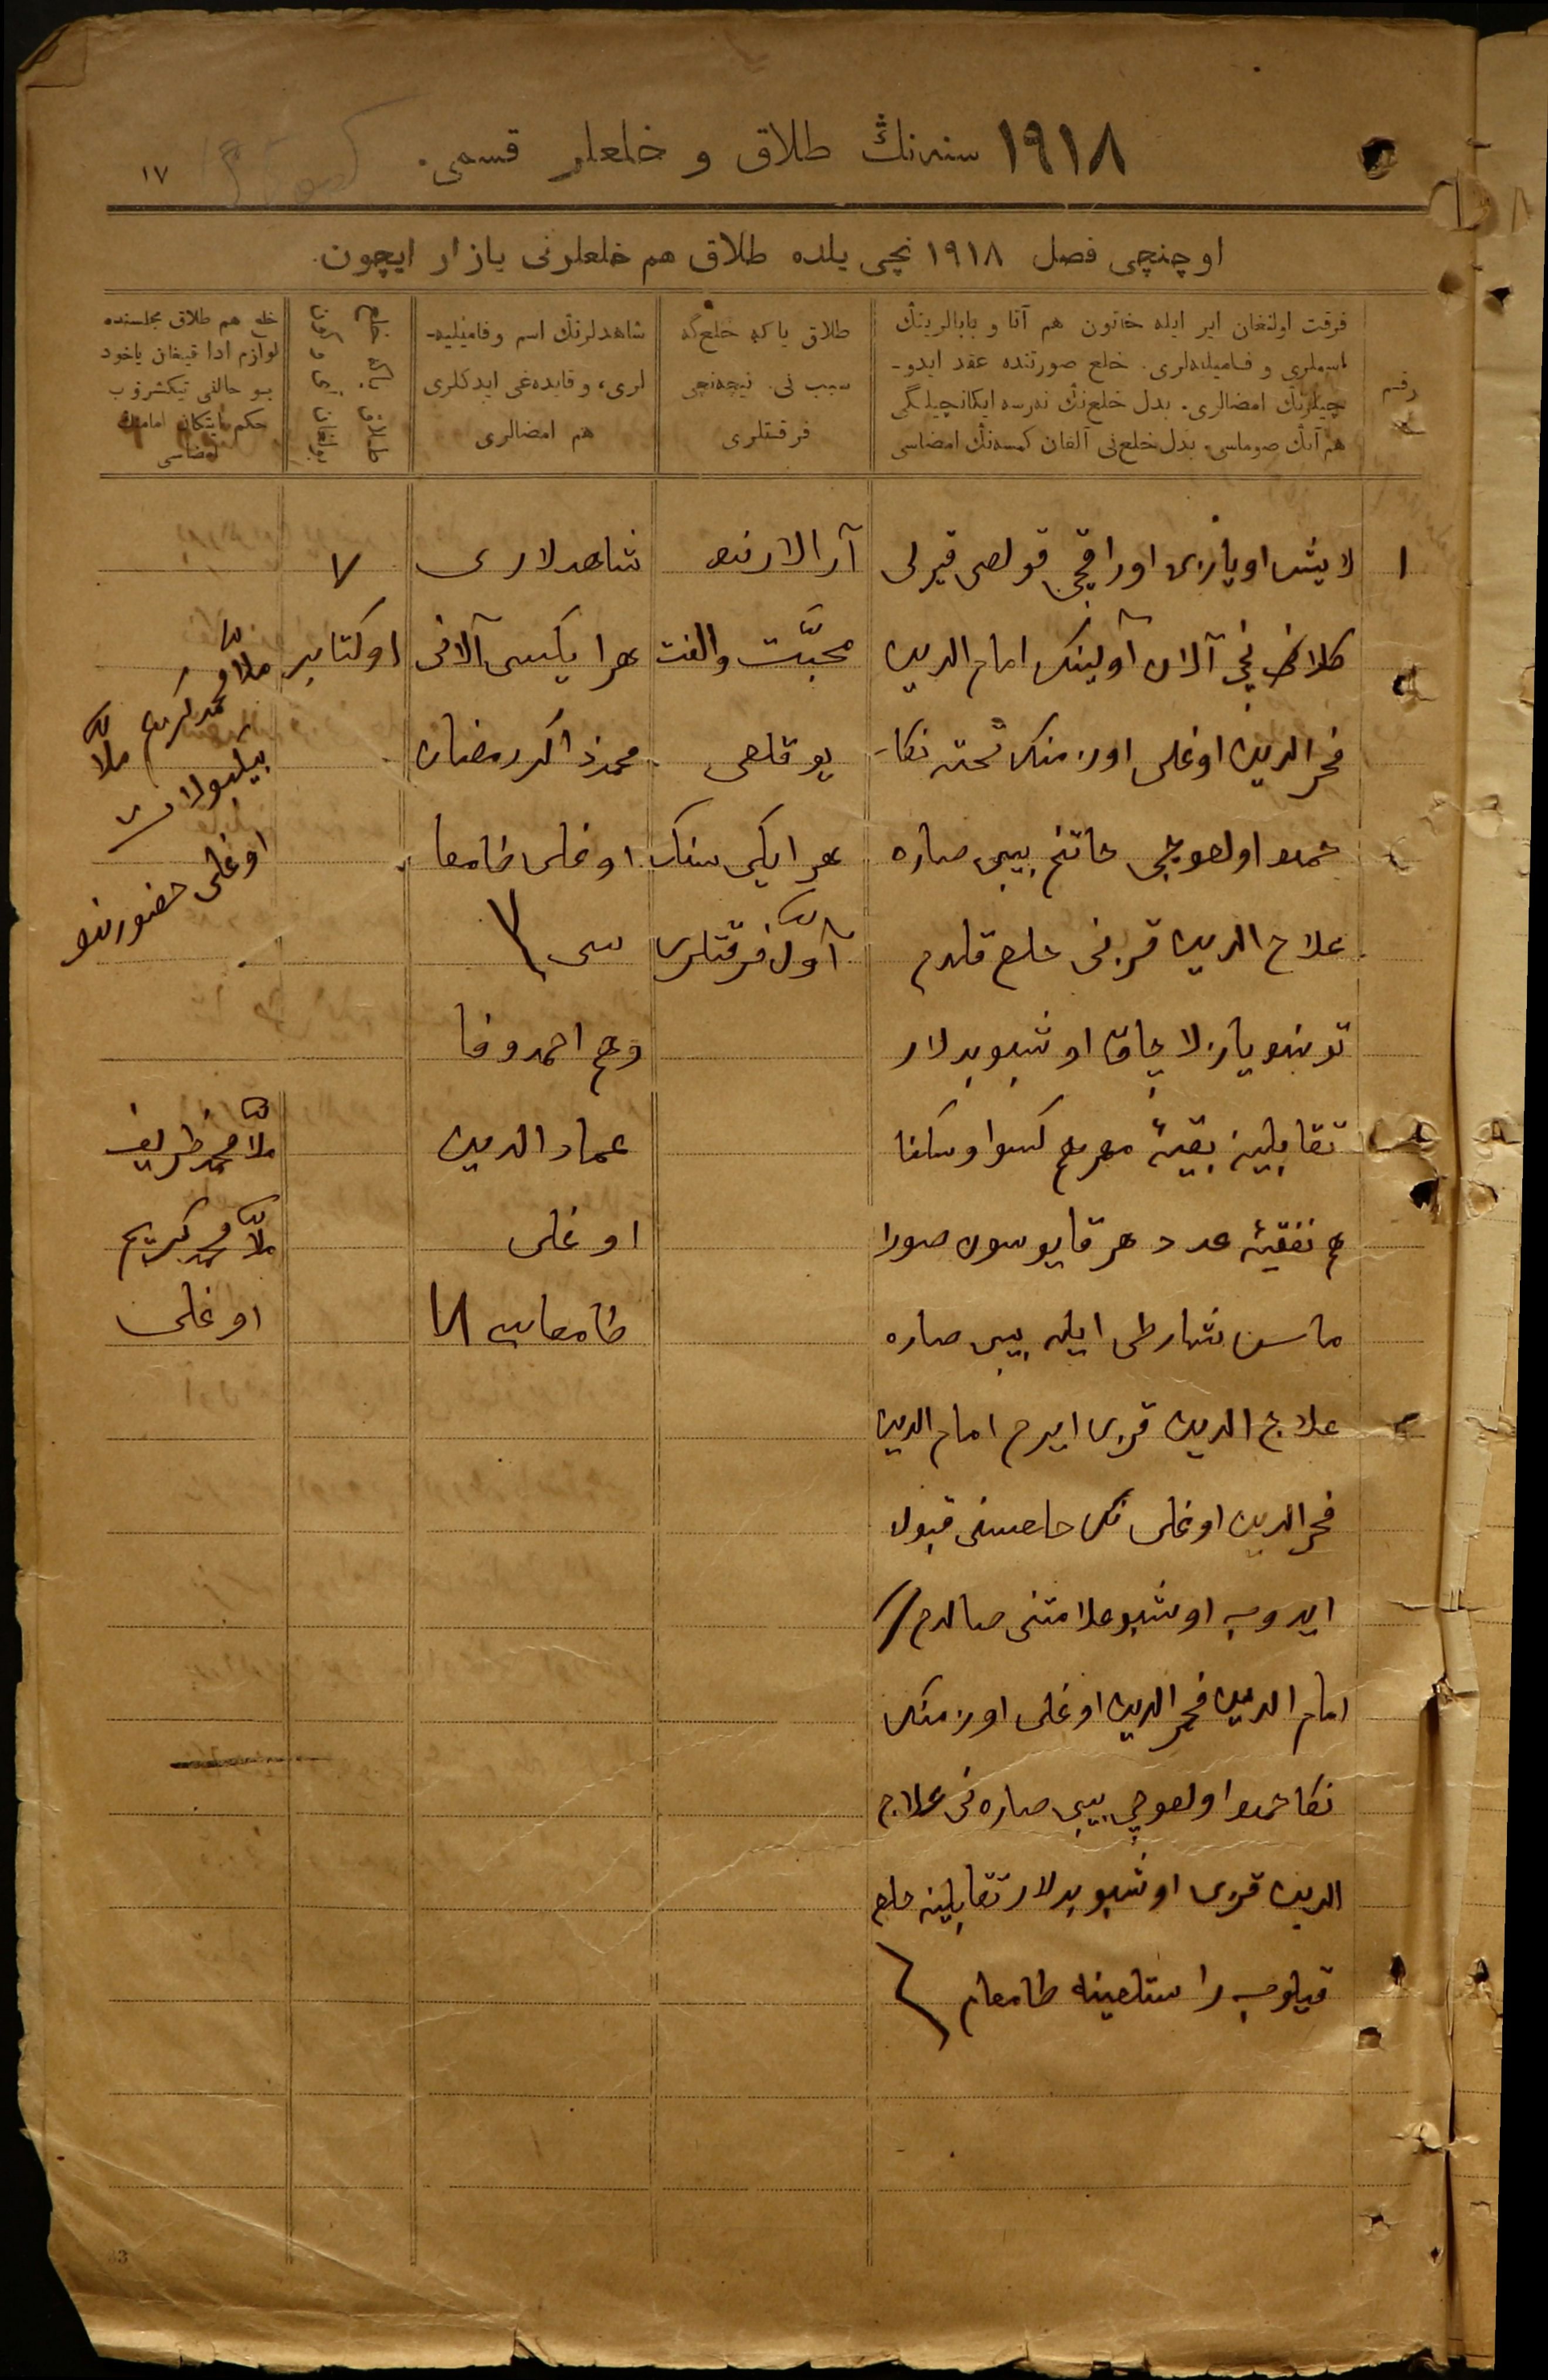 ١٩١٨ سنه‌نڭ طلاق و خلعلر قسمی.
١٧
اوچنچی فصل ١٩١٨ نچی یلده طلاق هم خلعلرنی یازار ایچون.
رقم
فرقت اولنغان ایر ایله خاتون هم آنا و بابالرینڭ
اسملری و فامیلیه‌لری. خلع صورتنده عقد ایدو-
چیلرنڭ امضالری. بدل خلع‌نڭ نه‌رسه ایکانچیلگی
هم آنڭ صوماسی. بدل خلع‌نی آلغان کمسه‌نڭ امضاسی
طلاق یاکه خلع‌گه
سبب نی. نیچه‌نچی
فرقتلری
شاهدلرنڭ اسم وفامیلیه-
لری، وقایده‌غی ایدکلری
هم امضالری
طلاق یاکه خلع
بولغان آی و کون
خلع هم طلاق مجلسنده
لوازم ادا قیلغان یاخود
بو حالنی تیکشروب
حکم ایتکان امامنڭ
امضاسی
١
لایش اویازی اوراقچی قولصی قیرلی
کلانی نچی آلان آولینک امام الدین
فخر الدین اوغلی اوزمنک تحته نکا-
حمده اولغوچی خاتنم بیبی صاره
علاج الدین قزنی خلع قلدم
توبنده یازلاچاق اوشبو بدللار
تقابلینه بقیۀ مهرهم کسوا وسکنا
هم نفقۀ عدد هرقایوسون صورا
ماسن شارطی ایله بیبی صاره
علاج الدین قزی ایرم امام الدین
فخر الدین اوغلی نک خلعسنی قبول
ایدوب اوشبو علامتنی صالدم
امام الدین فخر الدین اوغلی اوزمنک
نکاحمده اولغوچی بیبی صاره‌نی علاج
الدین قزی اوشبو بدللار تقابلینه خلع
قیلوب راستلغینه طامغام
آرالارنده
محبّت والفت
یوقلغی
هر ایکی سنک
آوّل فرقتلری
شاهدلاری
هر ایکیسی آلانی
محمدذاکر رمضان
اوغلی طامغا
سی
وهم احمدوفا
عماد الدین
اوغلی
طامغاسی
٧
اوکتابر
ملا محمدکریم ملا
بیکبولات
اوغلی حضورنده
ملا محمدظریف
ملا محمدکریم
اوغلی